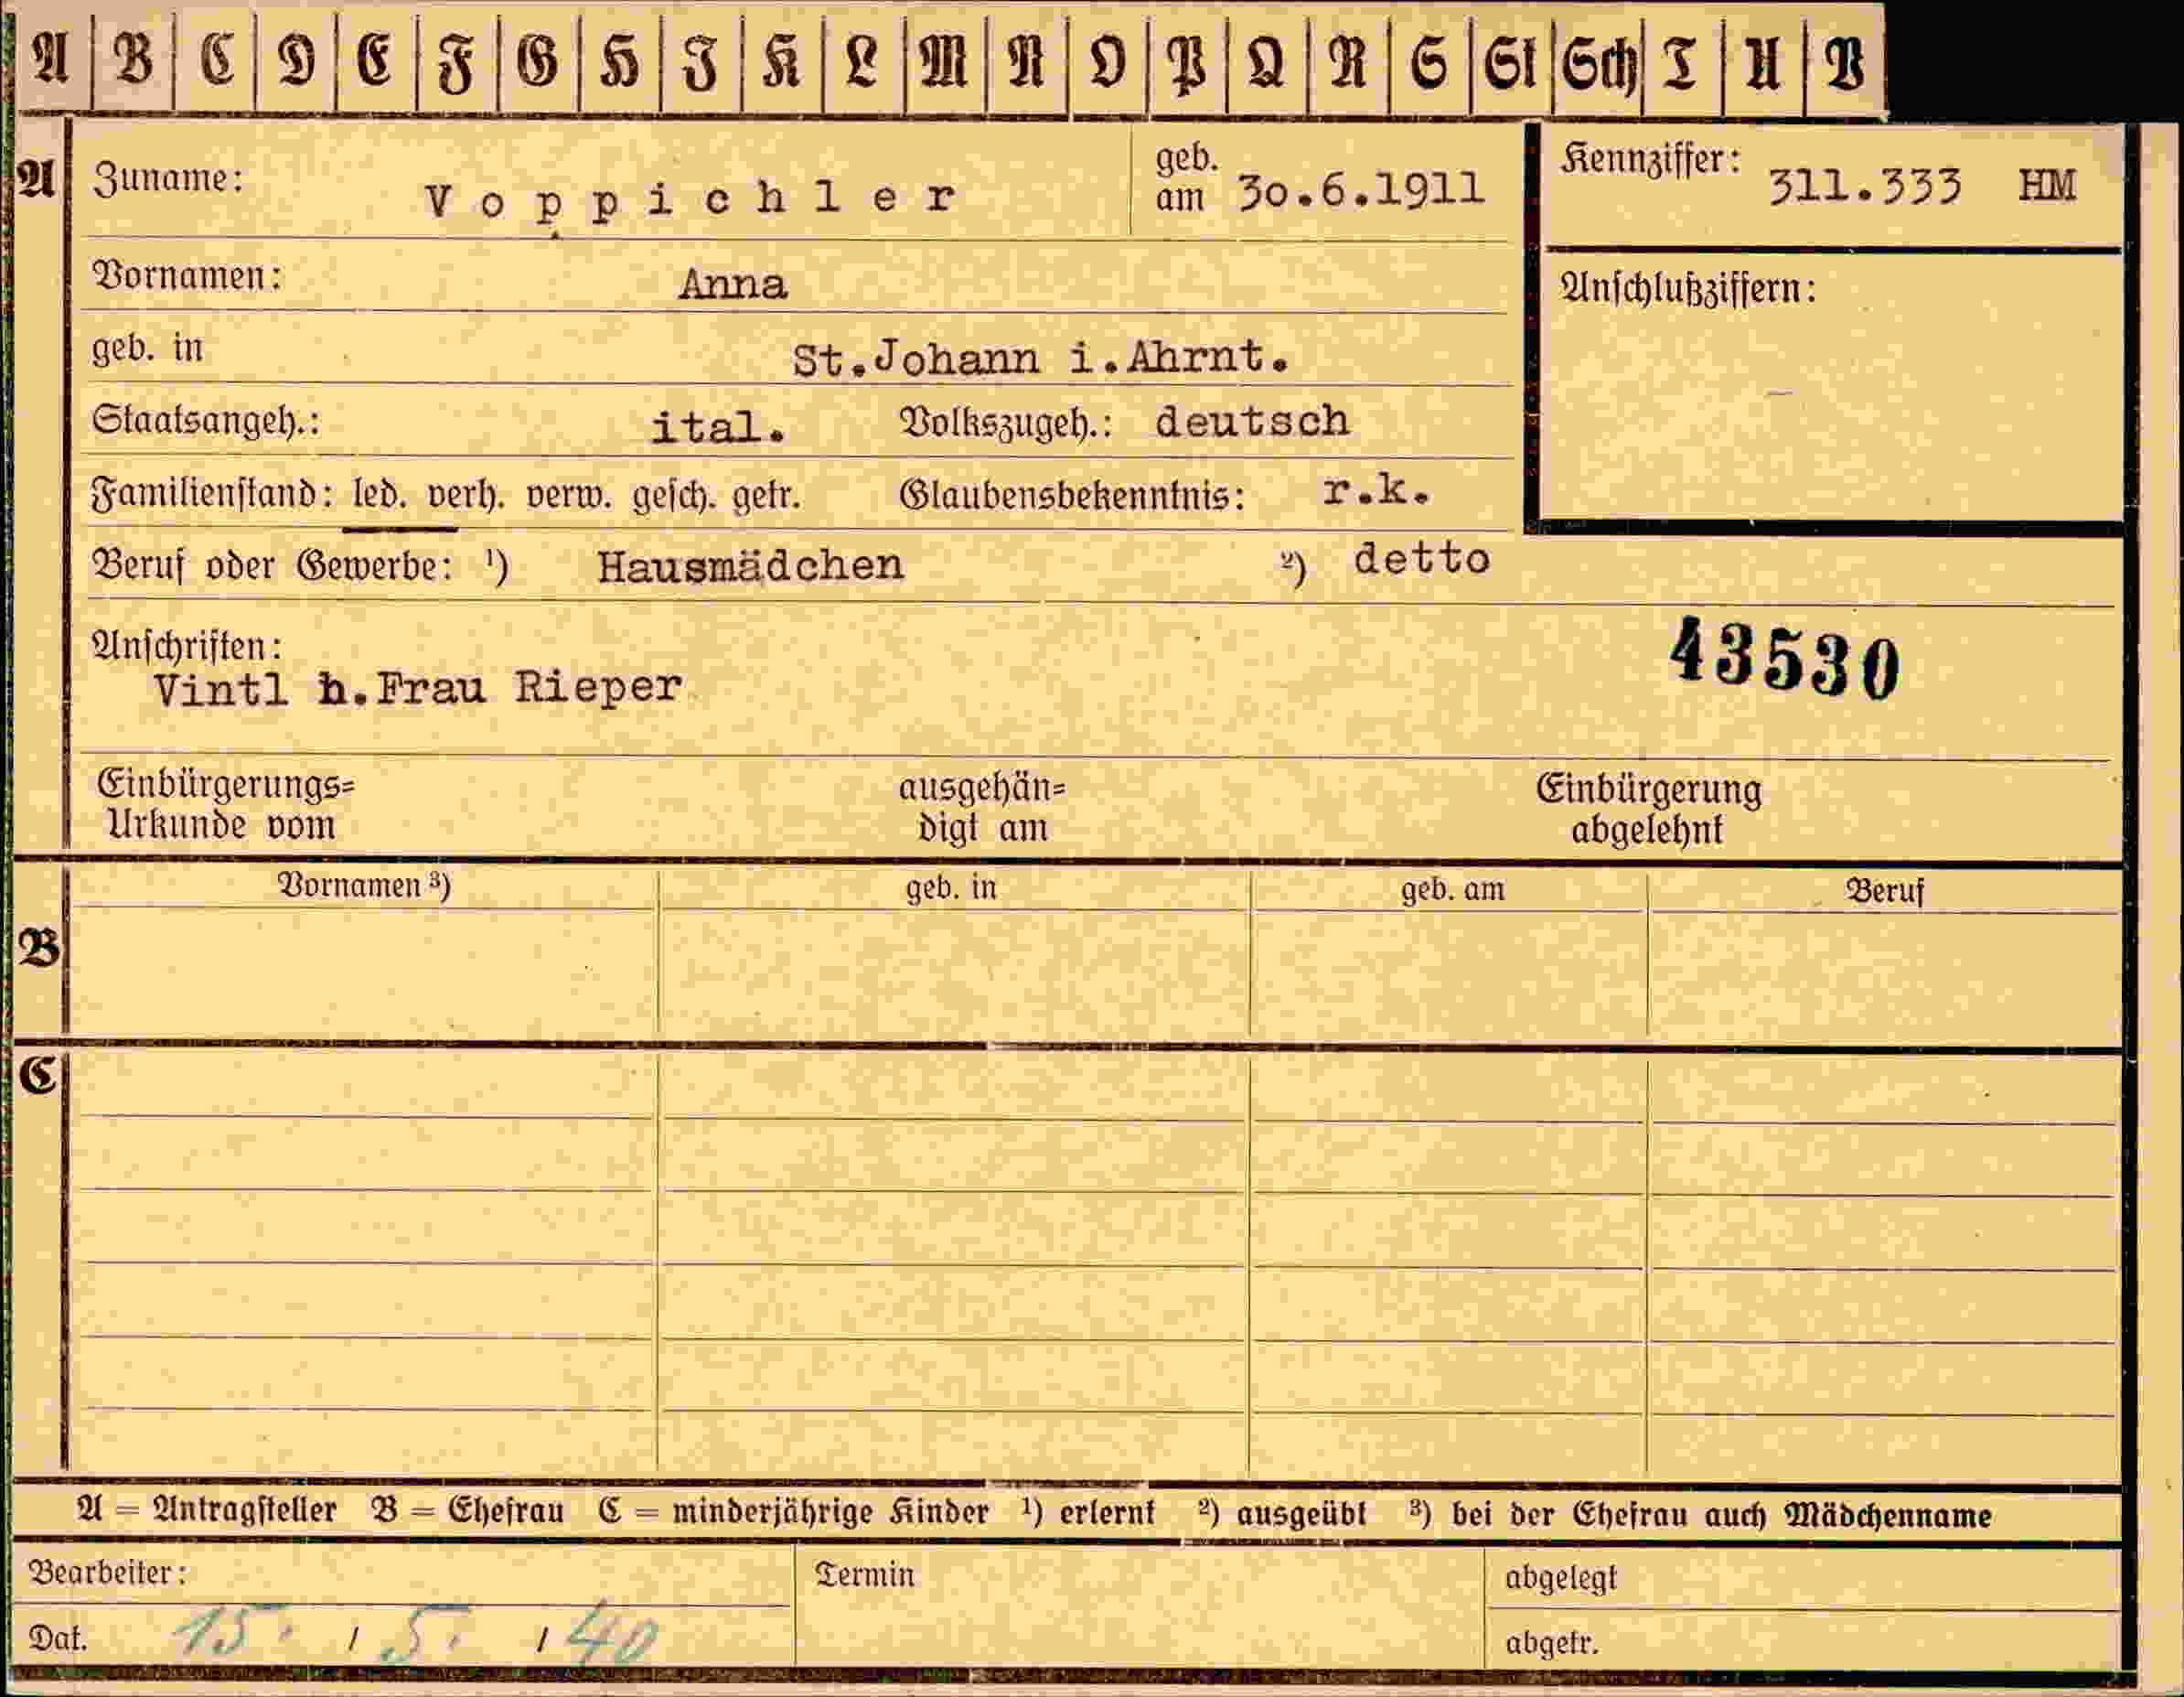 A B C D E F G H I K L M N O P Q R S St Sch T U V
A Zuname: Voppichler geb. am 30.6.1911 Kennziffer: 311.333 HM
Vornamen: Anna Anschlußziffern:
geb. in St.Johann i.Ahrnt.
Staatsangeh.: ital. Volkszugeh.: deutsch
Familienstand: led. verh. verw. gesch. getr. Glaubensbekenntnis: r.k.
Beruf oder Gewerbe: ¹) Hausmädchen ²) detto
Anschriften: 43530
Vintl h.Frau Rieper
Einbürgerungs= ausgehän= Einbürgerung
Urkunde vom digt am abgelehnt
Vornamen ³) geb. in geb. am Beruf
B
C
A = Antragsteller B = Ehefrau C = minderjährige Kinder ¹) erlernt ²) ausgeübt ³) bei der Ehefrau auch Mädchenname
Bearbeiter: Termin abgelegt
Dat. 15. / 5. / 40 abgetr.